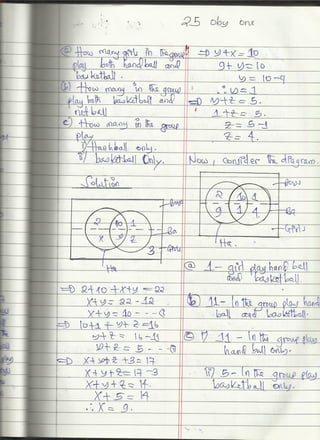 25 Oby one
(a) How many girls in the group
play both handball and
basketball.
(b) How many in the group
play both basketball and
netball
(c) How many in the group
play
i) Handball only.
ii) basketball Only.
Solution
Boys
2 10 1
Ba
x y z
3 Girls
Ha
⇒ 2+10+x+y=22
x+y=22-12
x+y=10 ---(i)
⇒ 10+1+y+z=16
y+z=16-11
y+z=5 ---(ii)
⇒ x+y+z+3=17
x+y+z=17-3
x+y+z=14
x+5=14
∴ x=9.
⇒ y+x=10
9+y=10
y=10-9
∴ y=1
⇒ y+z=5.
1+z=5.
z=5-1
z=4.
Now, consider the diagram.
Boys
2 10 1
Ba
9 1 4
Girls
Ha.
(a) 1 - girl play hand ball
and basketball
(b) 11 - In the group play hand
ball and basketball.
(c) i) 11 - In the group play
hand ball only.
ii) 5 - In the group play
basketball only.